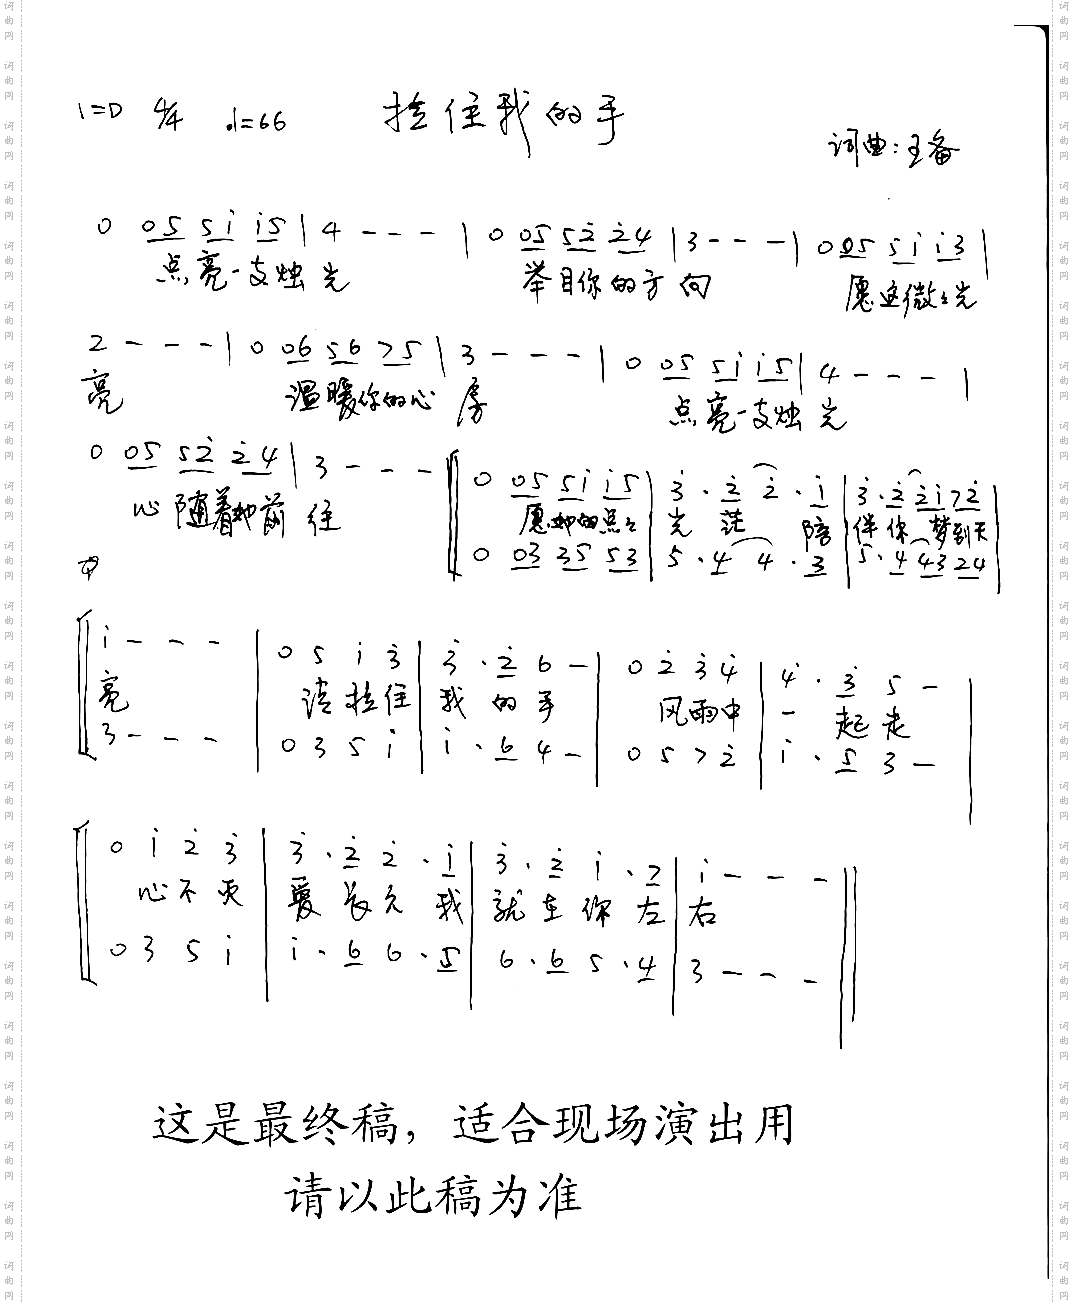 1=D 4/4 ♩=66 拉住我的手
词曲:王备
0 05 5i i5 | 4 - - - | 0 05 52 24 | 3 - - - | 0 05 5i i3 |
点亮一支烛光 举目你的方向 愿这微微光
2 - - - | 0 06 56 75 | 3 - - - | 0 05 5i i5 | 4 - - - |
亮 温暖你的心房 点亮一支烛光
0 05 52 24 | 3 - - - 0 05 5i i5 | 3 · 2 2 · i | 3 · 2 2i 72
心随着她前往 愿她的点点 光茫 陪 伴你 梦到天
0 03 35 53 | 5 · 4 4 · 3 | 5 · 4 43 24
i - - - | 0 5 i 3 | 3 · 2 6 - | 0 2 3 4 | 4 · 3 5 -
亮 请拉住 我的手 风雨中 一起走
3 - - - | 0 3 5 i | i · 6 4 - | 0 5 7 2 | i · 5 3 -
0 i 2 3 | 3 · 2 2 · i | 3 · 2 i · 7 | i - - -
心不灭 爱长久 我 就在你左 右
0 3 5 i | i · 6 6 · 5 | 6 · 6 5 · 4 | 3 - - -
这是最终稿，适合现场演出用
请以此稿为准
词曲网